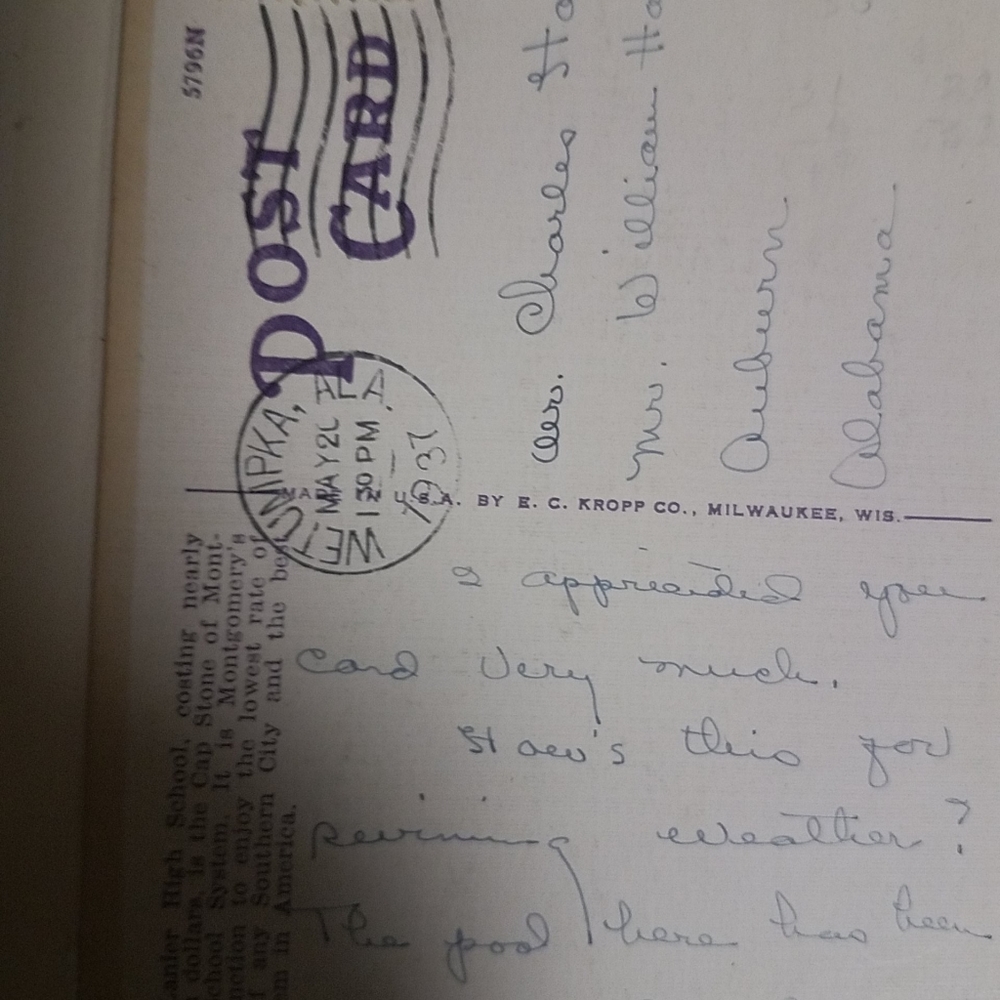 5796N
POST CARD
WETUMPKA, ALA.
MAY 20
130 PM
1937
Mr. Charles
Mr. William
Auburn
Alabama
U.S.A. BY E. C. KROPP CO., MILWAUKEE, WIS.
Lanier High School, costing nearly
dollars, is the Cap Stone of Mont-
School System. It is Montgomery's
to enjoy the lowest rate of
any Southern City and the
in America.
I appreciated your
card very much.
How's this for
swimming weather?
The pool here has been